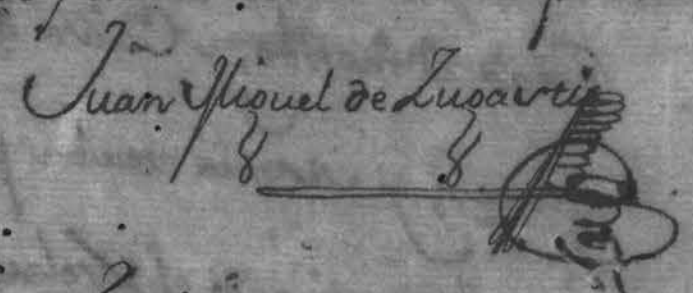 Juan Miguel de Zugarti